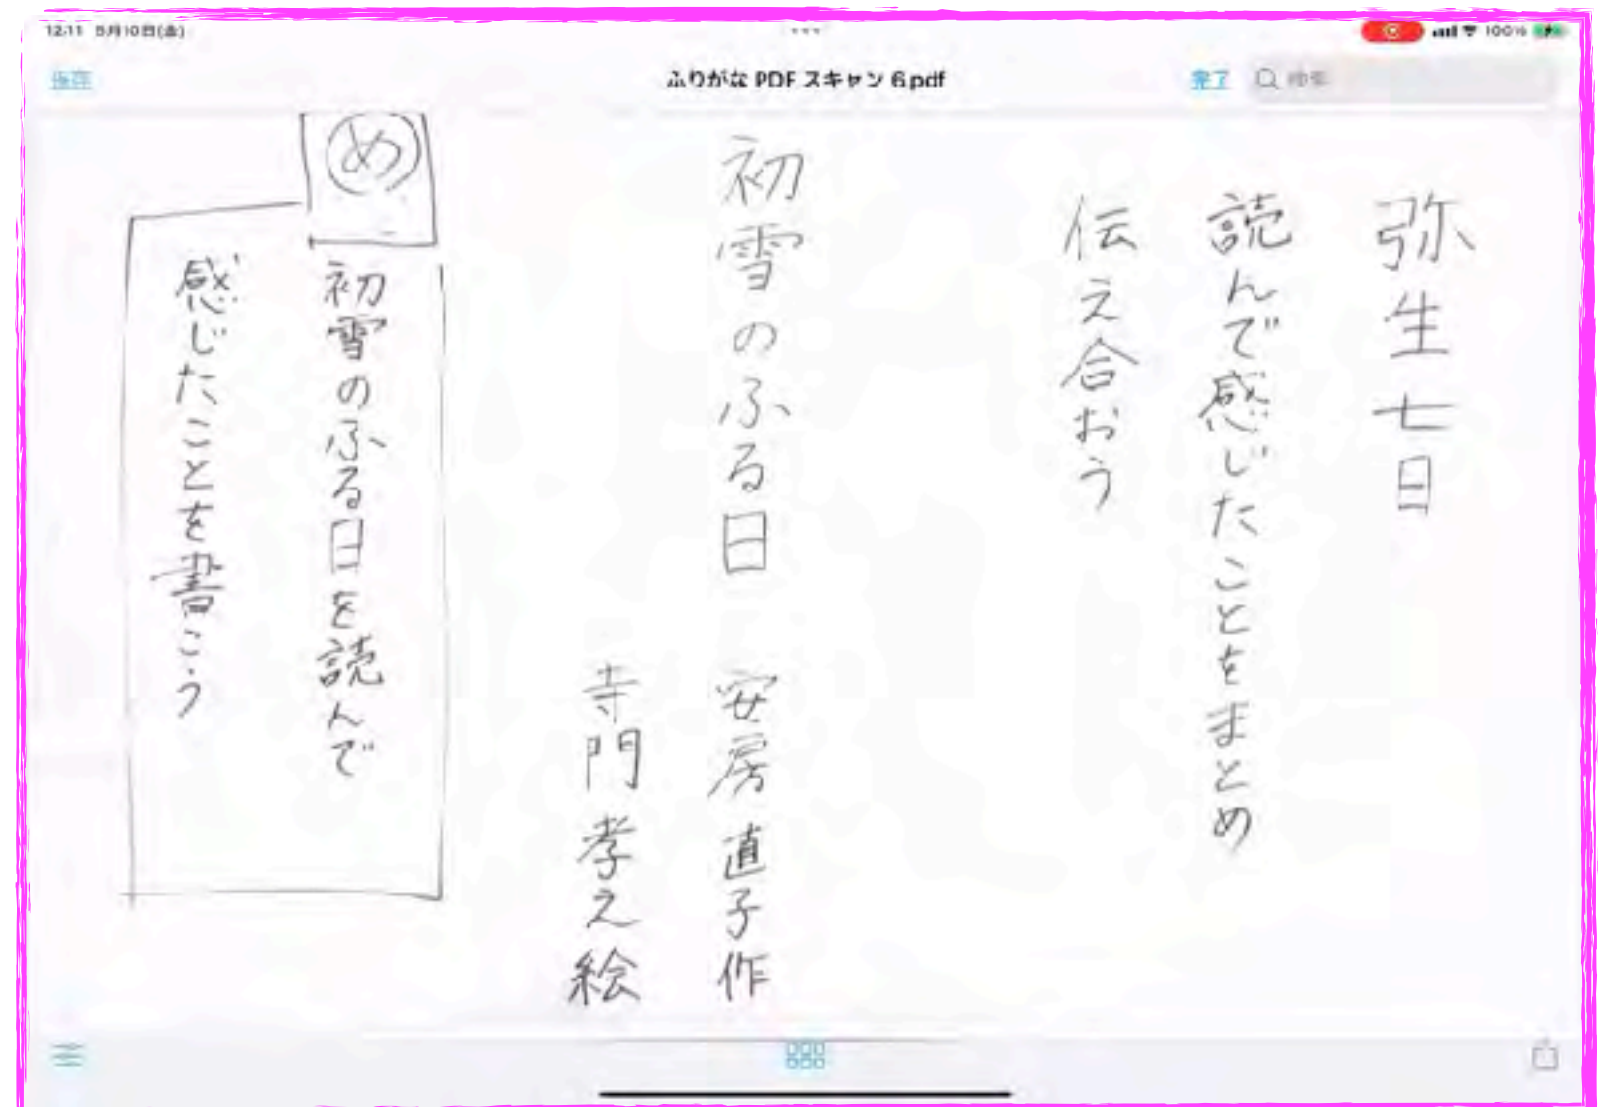 12:11 5月10日(金)
100%
保存
ふりがな PDF スキャン 6.pdf
完了
検索
弥生七日
読んで感じたことをまとめ
伝え合おう
初雪のふる日 安房直子作
寺門孝之絵
め
初雪のふる日を読んで
感じたことを書こう